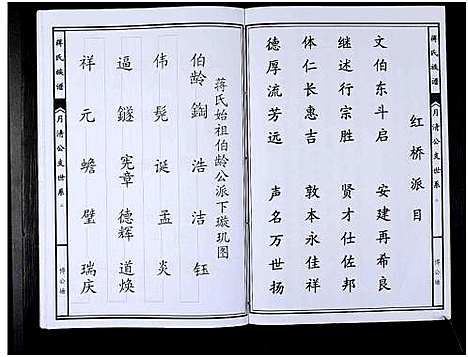 蒋氏族谱
《月清公支世系
博公墉
红桥派目
文伯东斗启　安建再希良
继述行宗胜　贤才仕佐邦
体仁长惠吉　敦本永佳祥
德厚流芳远　声名万世扬
蒋氏始祖伯龄公派下璇玑图
伯龄　鋾　浩　洁　钰
伟　髡　诞　孟　炎
逼　鐩　宪章　德辉　道焕
祥　元　蟾　璧　瑞庆
蒋氏族谱
《月清公支世系
博公墉